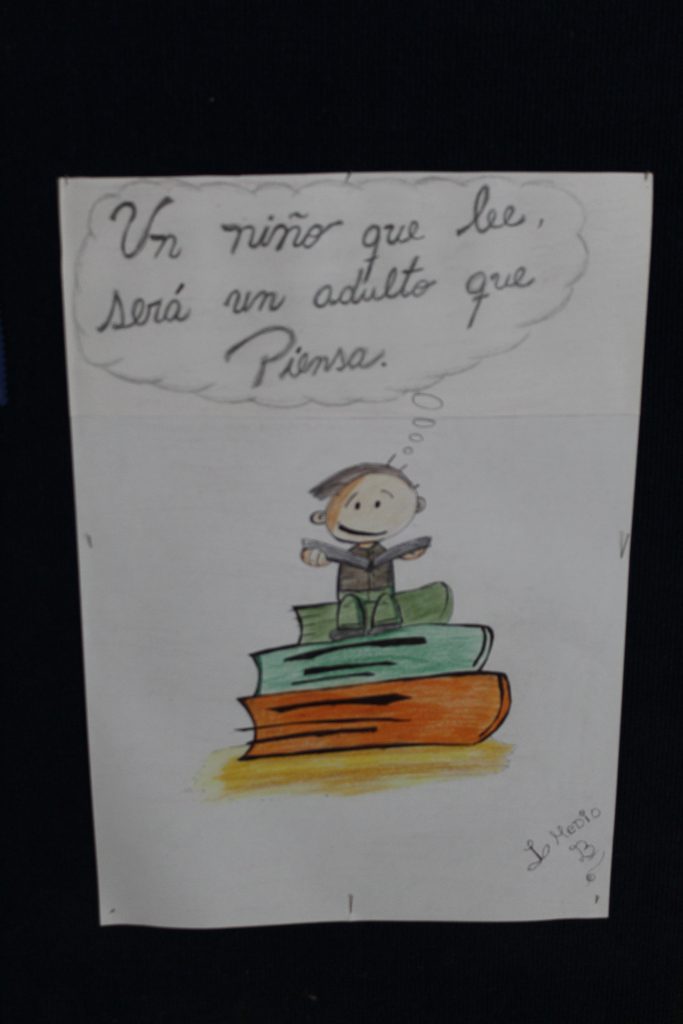 Un niño que lee,
será un adulto que
Piensa.
Medio
B